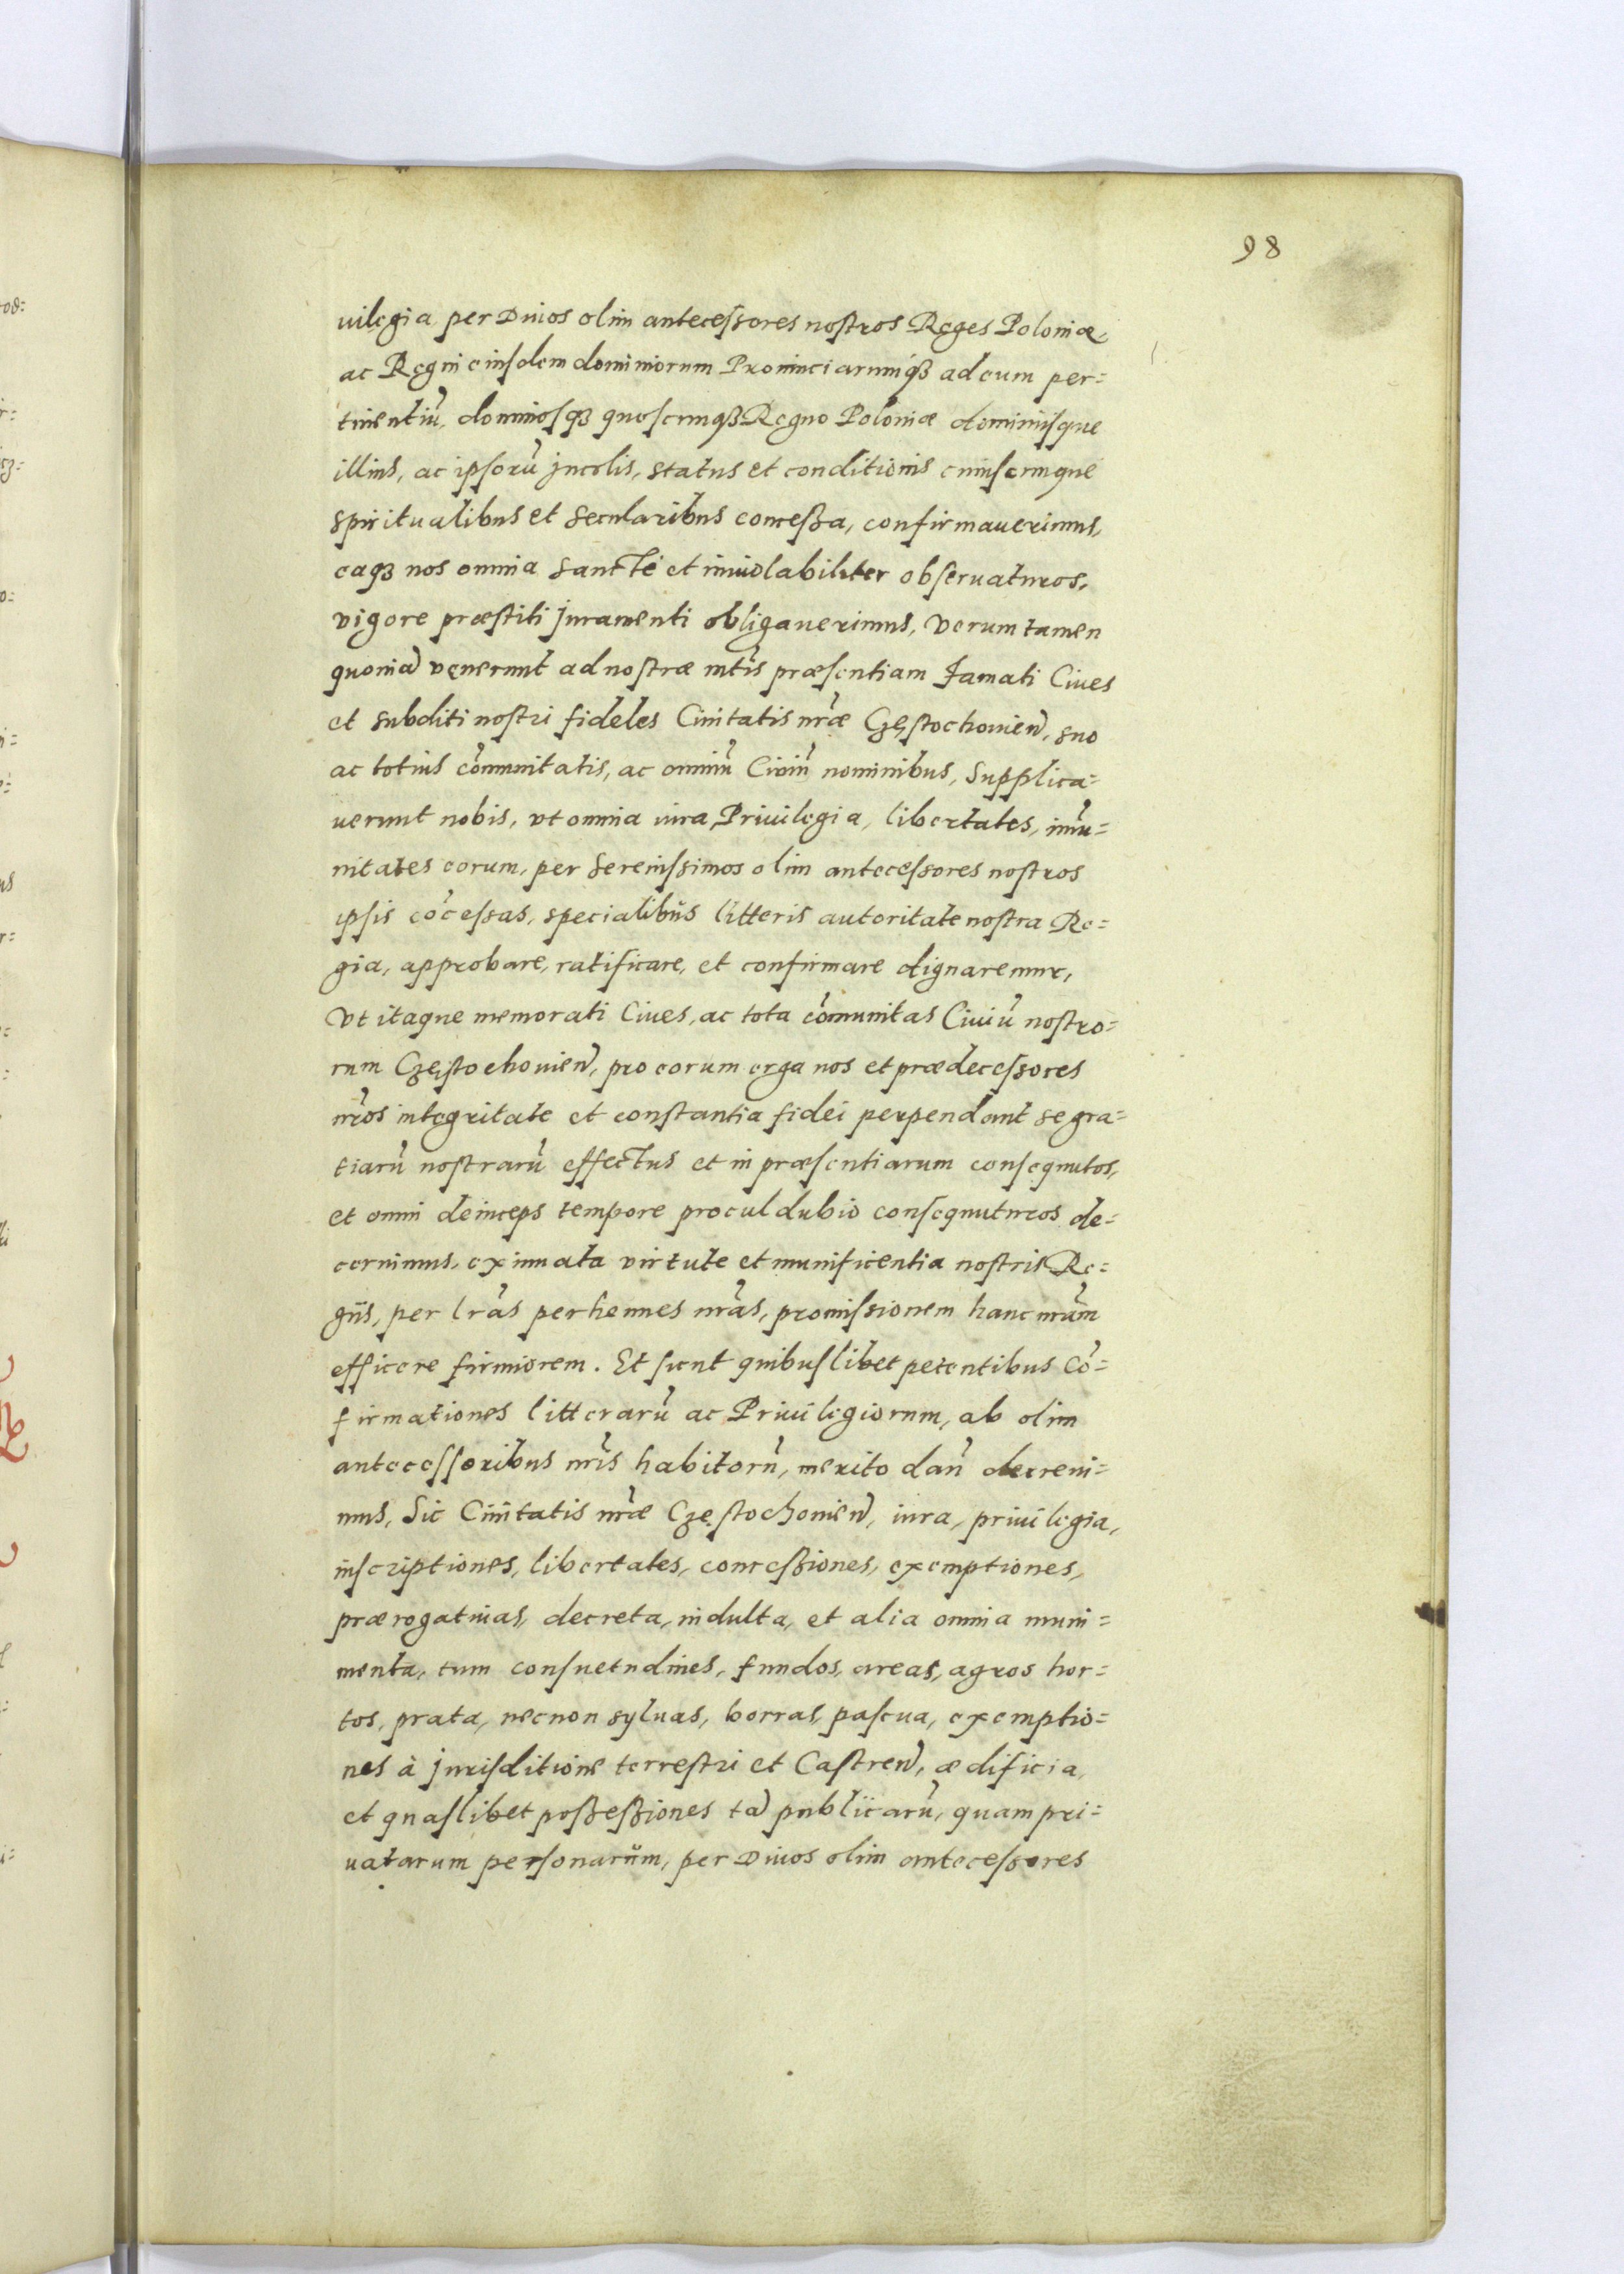 98
uilegia per Diuos olim antecessores nostros Reges Poloniæ,
ac Regni eiusdem dominiorum Prouinciarumq₃ ad eum per=
tinentiũ, dominosq₃ quoscumq₃ Regno Poloniæ dominiisque
illius, ac ipsorũ jncolis, status et conditionis cuiuscumque
spiritualibus et secularibus conceßa, confirmauerimus,
eaq₃ nos omnia sancte et inuiolabiliter obseruaturos,
vigore præstiti juramenti obligauerimus, Verum tamen
quoniã venerunt ad nostræ mtis præsentiam famati Ciues
et subditi nostri fideles Ciuitatis nræ Częstochouień, suo
ac totius cõmunitatis, ac omniũ Ciuiũ nominibus, supplica=
uerunt nobis, vt omnia iura, Priuilegia, libertates, imũ=
nitates eorum, per serenissimos olim antecessores nostros
ipsis cõcessas, specialibus litteris autoritate nostra Re=
gia, approbare, ratificare, et confirmare dignaremur,
Vt itaque memorati Ciues, ac tota cõmunitas Ciuiũ nostro=
rum Częstochouień, pro eorum erga nos et prædecessores
nros integritate et constantia fidei perpendant se gra=
tiarũ nostrarũ effectus et in præsentiarum consequutos,
et omni deinceps tempore procul dubio consequuturos de=
cernimus, ex innata virtute et munificentia nostris Re=
giis, per lras perhennes nras, promissionem hanc nram
efficere firmiorem. Et sicut quibuslibet petentibus Cõ=
firmationes litterarũ ac Priuilegiorum, ab olim
antecessoribus nris habitorũ, merito dari decreui=
mus, Sic Ciuitatis nræ Częstochouień, iura, priuilegia,
inscriptiones, libertates, conceßiones, exemptiones,
prærogatiuas, decreta, indulta, et alia omnia muni=
menta, tum consuetudines, fundos, areas, agros hor=
tos, prata, necnon syluas, borras, pascua, exemptio=
nes à jurisditione terrestri et Castreń, ædificia,
et quaslibet poßeßiones tã publicarũ, quam pri=
uatarum personarum, per Diuos olim antecessores